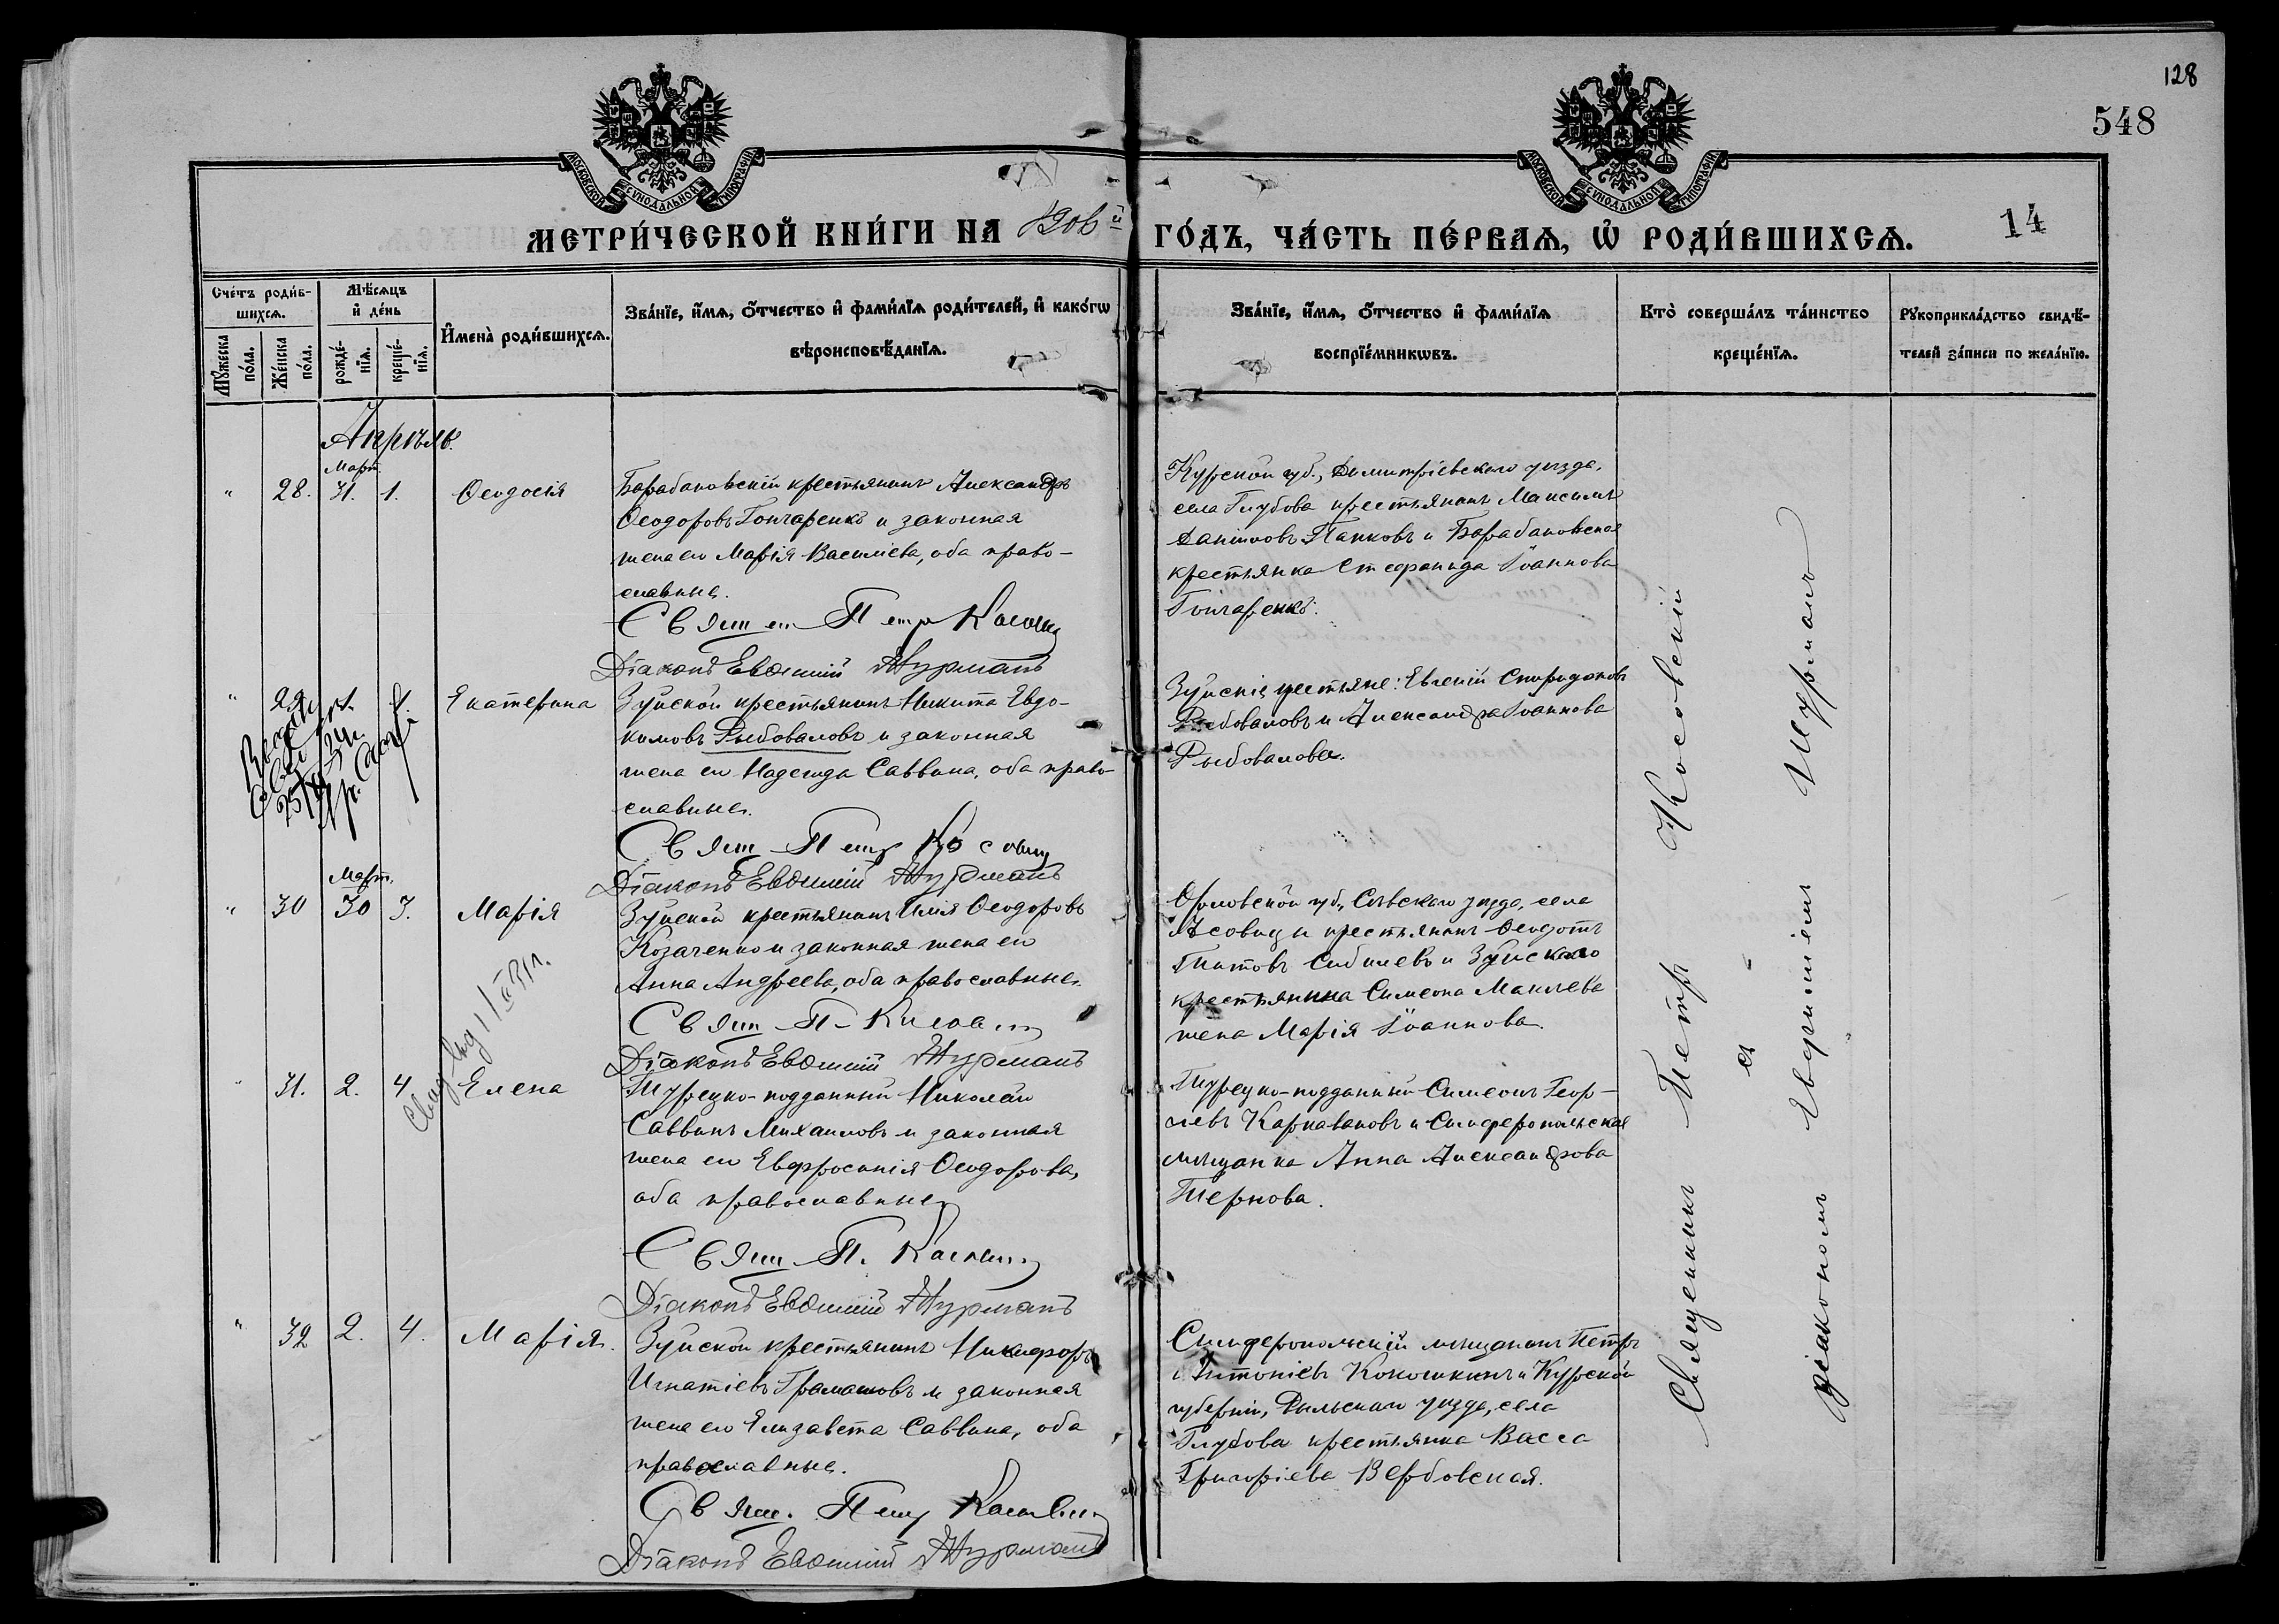 128
548
14
МОСКОВСКОЙ СѴНОДАЛЬНОЙ ТИПОГРАФІИ
МОСКОВСКОЙ СѴНОДАЛЬНОЙ ТИПОГРАФІИ
МЕТРИ́ЧЕСКОЙ КНИ́ГИ НА 1906й ГО́ДЪ, ЧА́СТЬ ПЕ́РВАѦ, Ѡ҆ РОДИ́ВШИХСѦ.
Сче́тъ роди́в-
шихсѧ.
Мꙋ́жеска по́ла.
Же́нска по́ла.
Мѣ́сѧцъ
и҆ де́нь
рожде́-
нїѧ.
креще́-
нїѧ.
И҆мена̀ роди́вшихсѧ.
Зва́нїе, и҆́мѧ, ѻ҆́тчество и҆ фами́лїѧ роди́телей, и҆ како́гѡ
вѣроисповѣ́данїѧ.
Зва́нїе, и҆́мѧ, ѻ҆́тчество и҆ фами́лїѧ
воспрїе́мникѡвъ.
Кто̀ соверша́лъ та́инство
креще́нїѧ.
Рꙋкоприкла́дство свидѣ́-
телей за́писи по жела́нїю.
Апрѣль.
Март.
" 28. 31. 1. Ѳеодосія
Барабановскій крестьянинъ Александръ
Ѳеодоровъ Гончаренко и законная
жена его Марія Василіева, оба право-
славные.
Свящ Петр Косовский
Діаконъ Евѳимій Шурманъ
Курской губ., Димитріевскаго уѣзда,
села Глубова крестьянинъ Максимъ
Даніиловъ Панковъ и Барабановская
крестьянка Стефанида Іоаннова
Гончаренко.
" 29 1. Екатерина
Зуйской крестьянинъ Никита Евдо-
кимовъ Рыбоваловъ и законная
жена его Надежда Саввина, оба право-
славные.
Свящ Петр Косовский
Діаконъ Евѳимій Шурманъ
Зуйскіе крестьяне: Евгеній Спиридоновъ
Рыбоваловъ и Александра Іоаннова
Рыбовалова.
Март.
" 30 30 3. Марія
Зуйской крестьянинъ Илія Ѳеодоровъ
Козаченко и законная жена его
Анна Андреева, оба православные.
Свящ П. Косовский
Діаконъ Евѳимій Шурманъ
Орловской губ., Сѣвскаго уѣзда, села
Лѣсовицы крестьянинъ Ѳеодотъ
Титовъ и Зуйскаго
крестьянина Симеона Маклева
жена Марія Іоаннова.
" 31. 2. 4. Елена
Турецко-подданный Николай
Саввинъ Михаиловъ и законная
жена его Евфросинія Ѳеодорова,
оба православные
Свящ П. Косовский
Діаконъ Евѳимій Шурманъ
Турецко-подданный Симеонъ Геор-
гіевъ Карнавановъ и Симферопольская
мѣщанка Анна Александрова
Тернова.
" 32 2. 4. Марія.
Зуйской крестьянинъ Никифоръ
Игнатіевъ Грамашовъ и законная
жена его Елизавета Саввина, оба
православные.
Свящ. Петр Косовский
Діаконъ Евѳимій Шурманъ
Симферопольскій мѣщанинъ Петръ
Антоніевъ Кокошкинъ и Курской
губерніи, Рыльскаго уѣзда, села
Глубова крестьянка Васса
Григоріева Вербовская.
Священникъ Петръ Косовскій
съ
діакономъ Евѳиміемъ Шурманъ